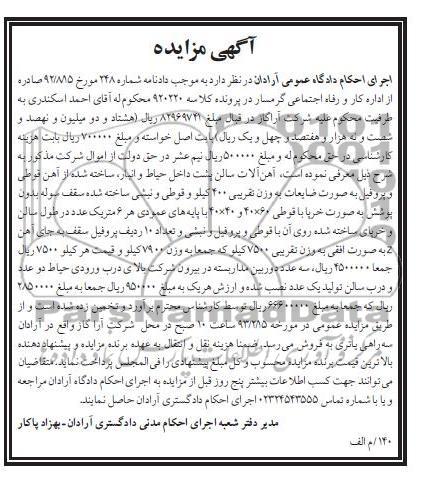 آگهی مزایده
اجرای احکام دادگاه عمومی آرادان در نظر دارد به موجب دادنامه شماره ۲۴۸ مورخ ۹۲/۸/۱۵ صادره
از اداره کار و رفاه اجتماعی گرمسار در پرونده کلاسه ۹۲۰۲۲۰ محکوم له آقای احمد اسکندری به
طرفیت محکوم علیه شرکت آراگاز در قبال مبلغ ۸۲۹۶۹۷۴۱ ریال (هشتاد و دو میلیون و نهصد و
شصت و نه هزار و هفتصد و چهل و یک ریال) بابت اصل خواسته و مبلغ ۷۰۰۰۰۰ ریال بابت هزینه
کارشناسی در حق محکوم له و مبلغ ۵۰۰۰۰۰ ریال نیم عشر در حق دولت از اموال شرکت مذکور به
شرح ذیل معرفی نموده است، آهن آلات سالن پشت داخل حیاط و انبار، ساخته شده از آهن قوطی
و پروفیل به صورت ضایعات به وزن تقریبی ۴۰۰ کیلو و قوطی و نبشی ساخته شده سقف سوله بدون
پوشش به صورت خرپا با قوطی ۶۰×۴۰ و ۴۰×۴۰ با پایه های عمودی هر ۶ متر یک عدد در طول سالن
و خرپای ساخته شده روی آن با قوطی و پروفیل و نبشی و تعداد ۱۰ ردیف پروفیل سقف به جای آهن
2 به صورت افقی به وزن تقریبی ۷۵۰۰ کیلو که جمعا به وزن ۷۹۰۰ کیلو و قیمت هر کیلو ۷۵۰۰ ریال
جمعا ۴۵۰۰۰۰۰ ریال، سه عدد دوربین مدار بسته در بیرون شرکت بالای درب ورودی حیاط دو عدد
و درب سالن تولید یک عدد نصب شده و ارزش هر یک به مبلغ ۹۵۰۰۰۰ ریال جمعا به مبلغ ۲۸۵۰۰۰۰
ریال که جمعا به مبلغ ۶۶۶۰۰۰۰۰ ریال توسط کارشناس محترم برآورد و تخمین زده شده است و از
طریق مزایده عمومی در مورخه ۹۳/۲/۱۵ ساعت ۱۰ صبح در محل شرکت آرا گاز واقع در آرادان
سه راهی یاتری به فروش می رسد. ضمنا هزینه نقل و انتقال به عهده برنده مزایده و پیشنهاددهنده
بالاترین قیمت برنده مزایده محسوب و کل مبلغ پیشنهادی را فی المجلس پرداخت نماید. متقاضیان
می توانند جهت کسب اطلاعات بیشتر پنج روز قبل از مزایده به اجرای احکام دادگاه آرادان مراجعه
و یا با شماره تماس ۰۲۳۲۴۵۴۳۵۵۵ اجرای احکام دادگستری آرادان حاصل نمایند.
مدیر دفتر شعبه اجرای احکام مدنی دادگستری آرادان - بهزاد پاکار
۱۴۰/م الف